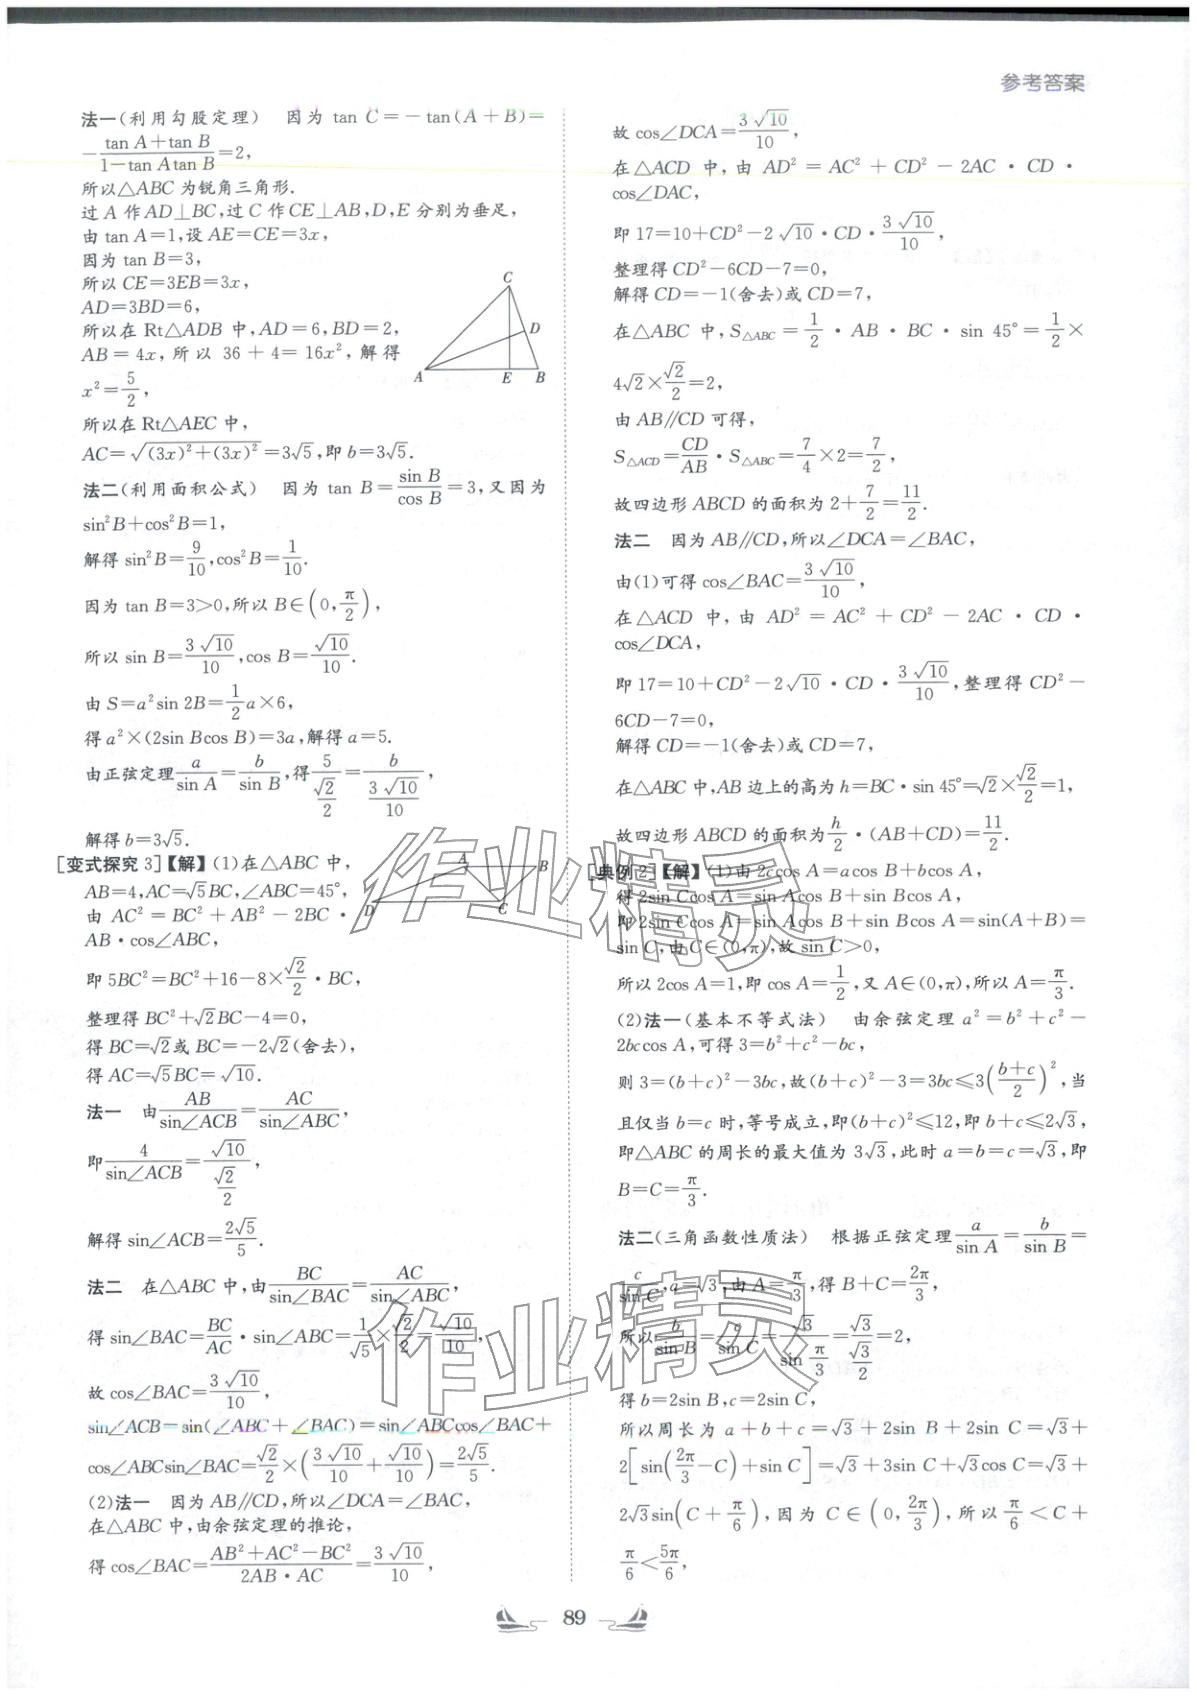 参考答案
法一(利用勾股定理)　因为 tan C=－tan(A＋B)=
－(tan A＋tan B)/(1－tan Atan B)=2,
所以△ABC 为锐角三角形.
过 A 作 AD⊥BC,过 C 作 CE⊥AB,D,E 分别为垂足,
由 tan A=1,设 AE=CE=3x,
因为 tan B=3,
所以 CE=3EB=3x,
AD=3BD=6,
所以在 Rt△ADB 中,AD=6,BD=2,
AB=4x,所以 36＋4=16x²,解得
x²=5/2,
C
D
A
E
B
所以在 Rt△AEC 中,
AC=√((3x)²＋(3x)²)=3√5,即 b=3√5.
法二(利用面积公式)　因为 tan B=sin B/cos B=3,又因为
sin²B+cos²B=1,
解得 sin²B=9/10,cos²B=1/10.
因为 tan B=3>0,所以 B∈(0,π/2),
所以 sin B=3√10/10,cos B=√10/10.
由 S=a²sin 2B=1/2 a×6,
得 a²×(2sin Bcos B)=3a,解得 a=5.
由正弦定理 a/sin A=b/sin B,得 5/(√2/2)=b/(3√10/10),
解得 b=3√5.
[变式探究 3]【解】(1)在△ABC 中,
AB=4,AC=√5BC,∠ABC=45°,
由 AC²=BC²＋AB²－2BC·
AB·cos∠ABC,
A
B
D
C
即 5BC²=BC²+16－8×√2/2·BC,
整理得 BC²+√2BC－4=0,
得 BC=√2或 BC=－2√2(舍去),
得 AC=√5BC=√10.
法一　由 AB/sin∠ACB=AC/sin∠ABC,
即 4/sin∠ACB=√10/(√2/2),
解得 sin∠ACB=2√5/5.
法二　在△ABC 中,由 BC/sin∠BAC=AC/sin∠ABC,
得 sin∠BAC=BC/AC·sin∠ABC=1/√5×√2/2=√10/10,
故 cos∠BAC=3√10/10,
sin∠ACB=sin(∠ABC＋∠BAC)=sin∠ABCcos∠BAC+
cos∠ABCsin∠BAC=√2/2×(3√10/10+√10/10)=2√5/5.
(2)法一　因为 AB∥CD,所以∠DCA=∠BAC,
在△ABC 中,由余弦定理的推论,
得 cos∠BAC=(AB²+AC²－BC²)/(2AB·AC)=3√10/10,
故 cos∠DCA=3√10/10,
在△ACD 中,由 AD²=AC²＋CD²－2AC·CD·
cos∠DAC,
即 17=10+CD²－2√10·CD·3√10/10,
整理得 CD²－6CD－7=0,
解得 CD=－1(舍去)或 CD=7,
在△ABC 中,S△ABC=1/2·AB·BC·sin 45°=1/2×
4√2×√2/2=2,
由 AB∥CD 可得,
S△ACD=CD/AB·S△ABC=7/4×2=7/2,
故四边形 ABCD 的面积为 2+7/2=11/2.
法二　因为 AB∥CD,所以∠DCA=∠BAC,
由(1)可得 cos∠BAC=3√10/10,
在△ACD 中,由 AD²=AC²＋CD²－2AC·CD·
cos∠DCA,
即 17=10+CD²－2√10·CD·3√10/10,整理得 CD²－
6CD－7=0,
解得 CD=－1(舍去)或 CD=7,
在△ABC 中,AB 边上的高为 h=BC·sin 45°=√2×√2/2=1,
故四边形 ABCD 的面积为 h/2·(AB+CD)=11/2.
[典例 2]【解】(1)由 2ccos A=acos B+bcos A,
得 2sin Ccos A=sin Acos B+sin Bcos A,
即 2sin Ccos A=sin Acos B+sin Bcos A=sin(A+B)=
sin C,由 C∈(0,π),故 sin C>0,
所以 2cos A=1,即 cos A=1/2,又 A∈(0,π),所以 A=π/3.
(2)法一(基本不等式法)　由余弦定理 a²=b²+c²－
2bccos A,可得 3=b²+c²－bc,
则 3=(b+c)²－3bc,故(b+c)²－3=3bc≤3((b+c)/2)²,当
且仅当 b=c 时,等号成立,即(b+c)²≤12,即 b+c≤2√3,
即△ABC 的周长的最大值为 3√3,此时 a=b=c=√3,即
B=C=π/3.
法二(三角函数性质法)　根据正弦定理 a/sin A=b/sin B=
c/sin C,a=√3,由 A=π/3,得 B+C=2π/3,
所以 b/sin B=c/sin C=√3/sin π/3=√3/(√3/2)=2,
得 b=2sin B,c=2sin C,
所以周长为 a+b+c=√3+2sin B+2sin C=√3+
2[sin(2π/3－C)+sin C]=√3+3sin C+√3cos C=√3+
2√3sin(C+π/6),因为 C∈(0,2π/3),所以 π/6<C+
π/6<5π/6,
作业精灵
作业精灵
89